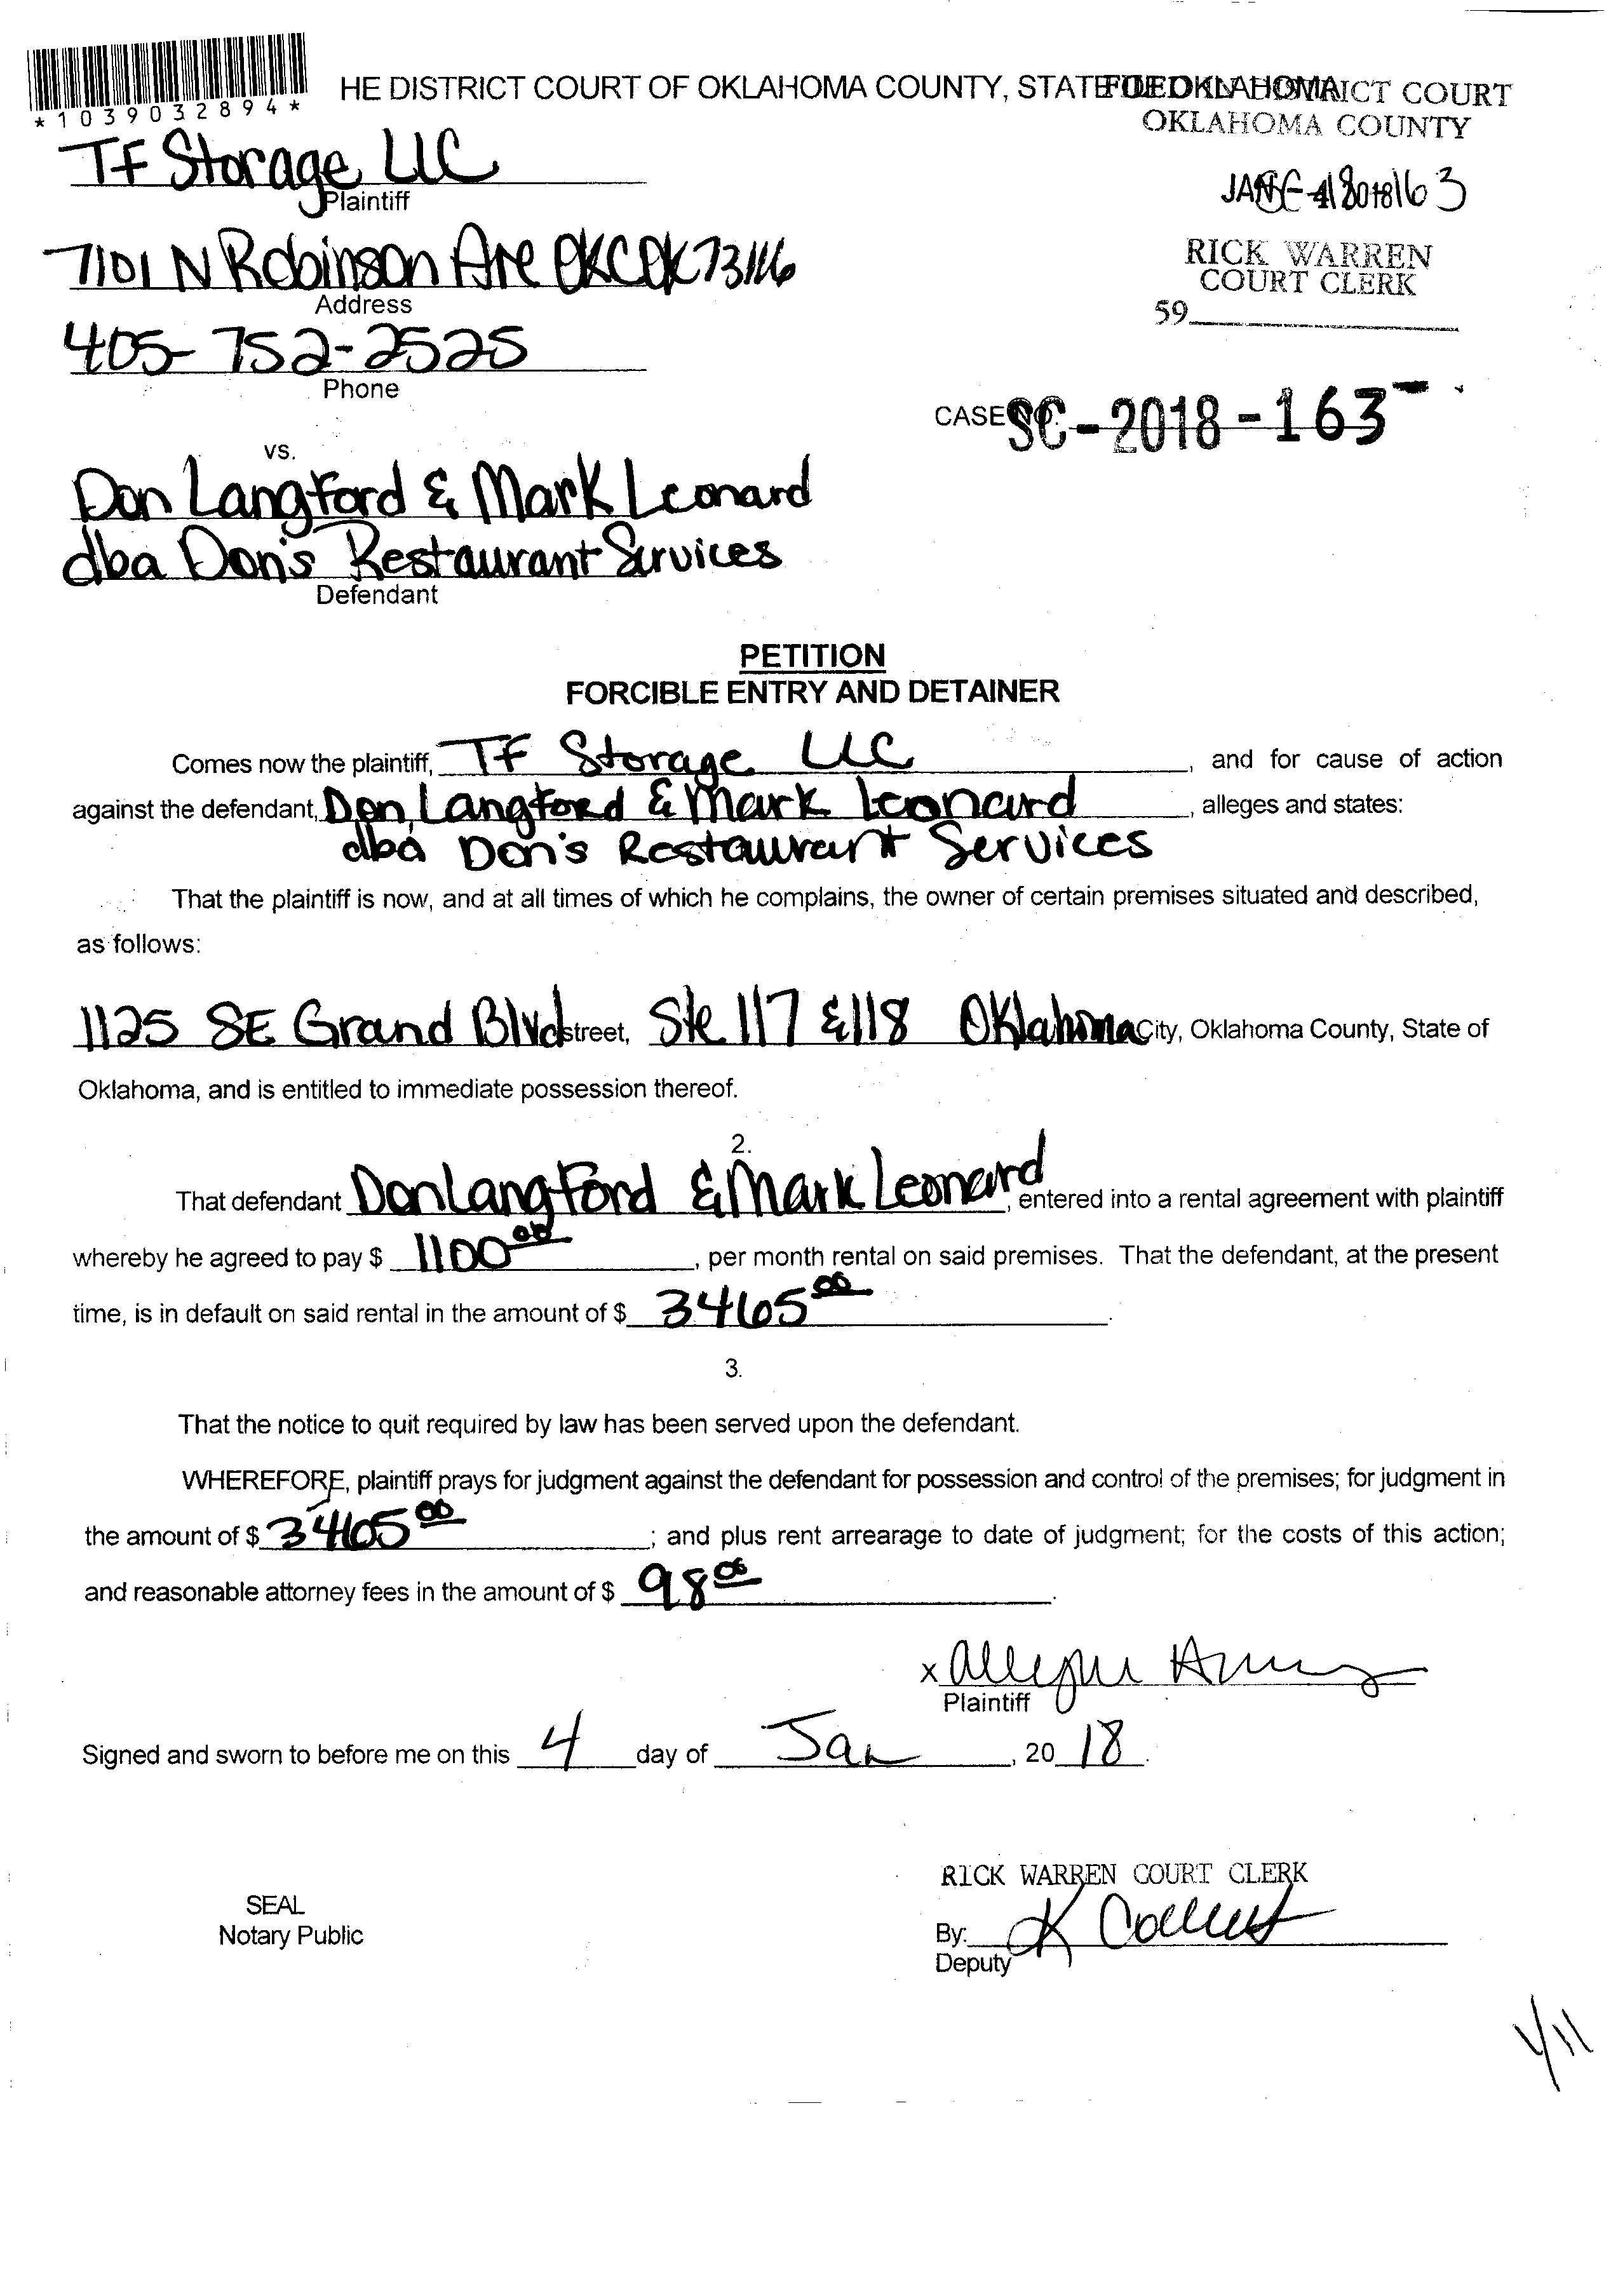 *1039032894*
HE DISTRICT COURT OF OKLAHOMA COUNTY, STATE OF OKLAHOMA
FILED IN DISTRICT COURT
OKLAHOMA COUNTY
TF Storage LLC
Plaintiff
JAN - 4 2018
RICK WARREN
COURT CLERK
59
7101 N Robinson Ave OKC OK 73116
Address
405-752-2525
Phone
CASE NO. SC-2018-163
vs.
Don Langford & Mark Leonard
dba Don's Restaurant Services
Defendant
PETITION
FORCIBLE ENTRY AND DETAINER
Comes now the plaintiff, TF Storage LLC, and for cause of action
against the defendant, Don Langford & Mark Leonard, alleges and states:
dba Don's Restaurant Services
That the plaintiff is now, and at all times of which he complains, the owner of certain premises situated and described,
as follows:
1125 SE Grand Blvd street, Ste 117 & 118 Oklahoma City, Oklahoma County, State of
Oklahoma, and is entitled to immediate possession thereof.
2.
That defendant Don Langford & Mark Leonard, entered into a rental agreement with plaintiff
whereby he agreed to pay $ 1100 00, per month rental on said premises. That the defendant, at the present
time, is in default on said rental in the amount of $ 3465 00.
3.
That the notice to quit required by law has been served upon the defendant.
WHEREFORE, plaintiff prays for judgment against the defendant for possession and control of the premises; for judgment in
the amount of $ 3465 00; and plus rent arrearage to date of judgment; for the costs of this action;
and reasonable attorney fees in the amount of $ 98 00.
x
Plaintiff
Signed and sworn to before me on this 4 day of Jan, 20 18.
RICK WARREN COURT CLERK
SEAL
Notary Public
By: K
Deputy
1/11